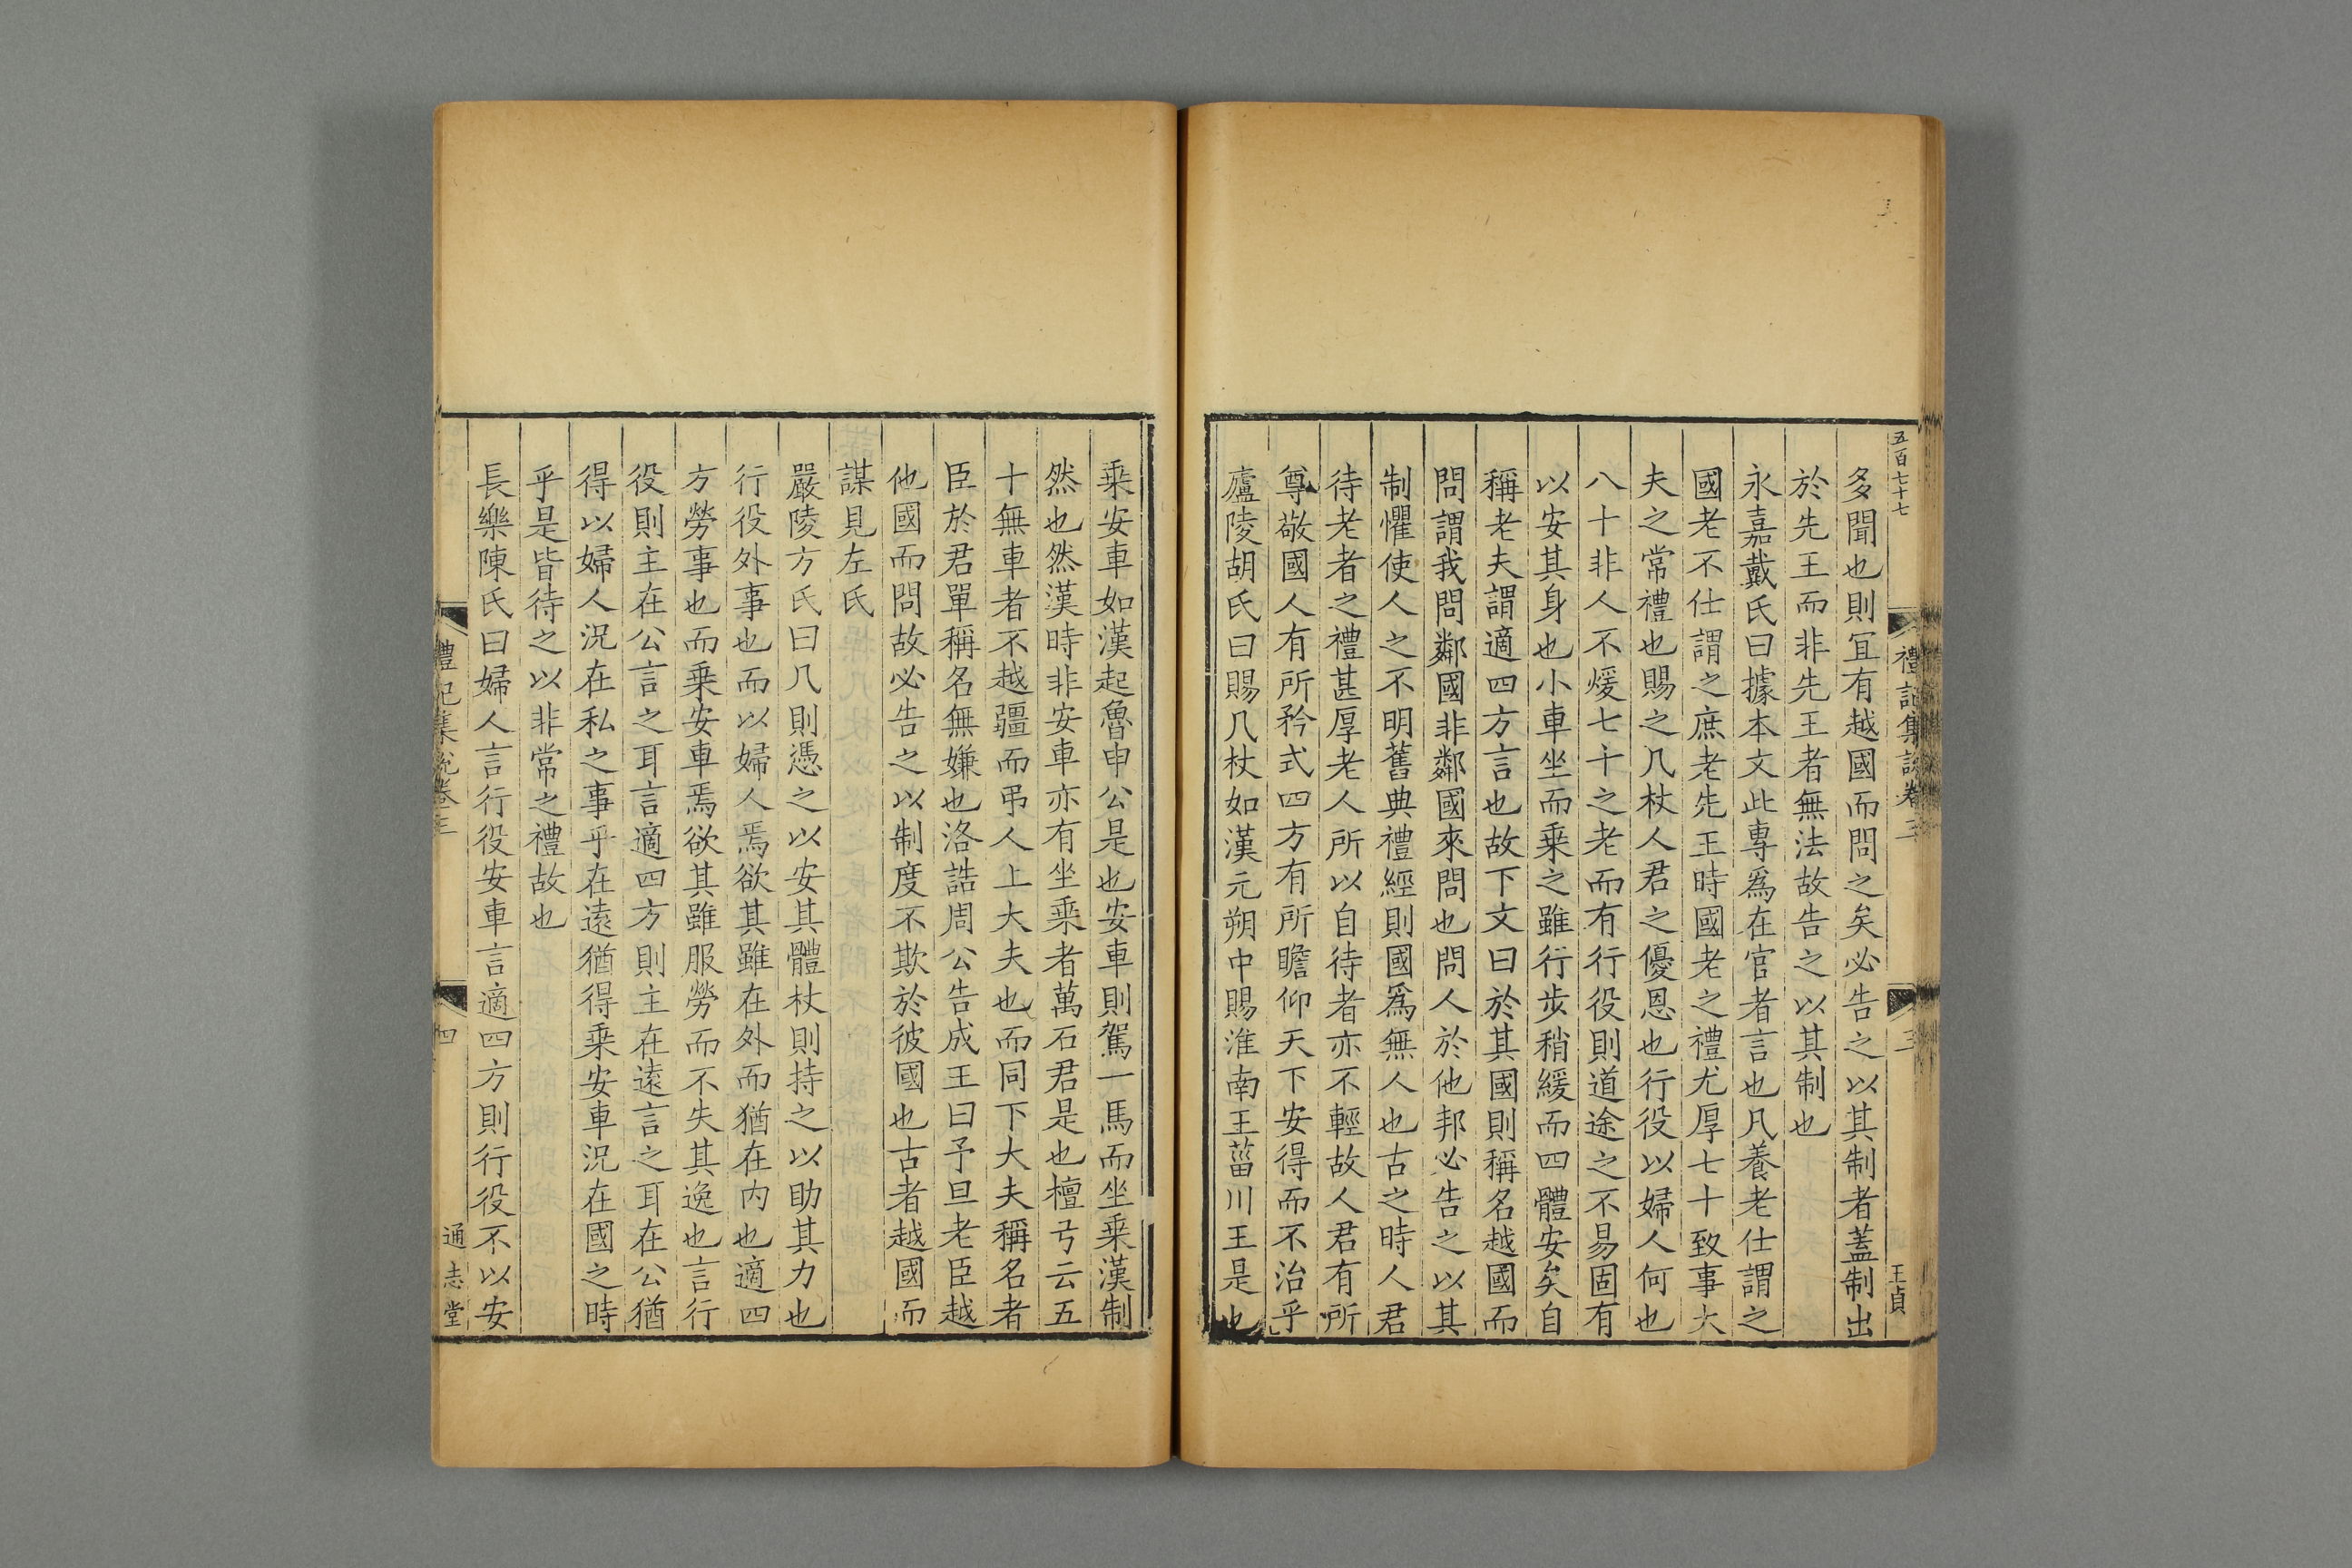 五百七十七
禮記集說卷三
三
王貞
多聞也則宜有越國而問之矣必告之以其制者蓋制出
於先王而非先王者無法故告之以其制也
永嘉戴氏曰據本文此專爲在官者言也凡養老仕謂之
國老不仕謂之庶老先王時國老之禮尤厚七十致事大
夫之常禮也賜之几杖人君之優恩也行役以婦人何也
八十非人不煖七十之老而有行役則道途之不易固有
以安其身也小車坐而乗之雖行步稍緩而四體安矣自
稱老夫謂適四方言也故下文曰於其國則稱名越國而
問謂我問鄰國非鄰國來問也問人於他邦必告之以其
制懼使人之不明舊典禮經則國爲無人也古之時人君
待老者之禮甚厚老人所以自待者亦不輕故人君有所
尊敬國人有所矜式四方有所瞻仰天下安得而不治乎
廬陵胡氏曰賜几杖如漢元朔中賜淮南王菑川王是也
乗安車如漢起魯申公是也安車則駕一馬而坐乗漢制
然也然漢時非安車亦有坐乗者萬石君是也檀弓云五
十無車者不越疆而弔人上大夫也而同下大夫稱名者
臣於君單稱名無嫌也洛誥周公告成王曰予旦老臣越
他國而問故必告之以制度不欺於彼國也古者越國而
謀見左氏
嚴陵方氏曰几則憑之以安其體杖則持之以助其力也
行役外事也而以婦人焉欲其雖在外而猶在内也適四
方勞事也而乗安車焉欲其雖服勞而不失其逸也言行
役則主在公言之耳言適四方則主在遠言之耳在公猶
得以婦人況在私之事乎在遠猶得乗安車況在國之時
乎是皆待之以非常之禮故也
長樂陳氏曰婦人言行役安車言適四方則行役不以安
禮記集說卷三
四
通志堂